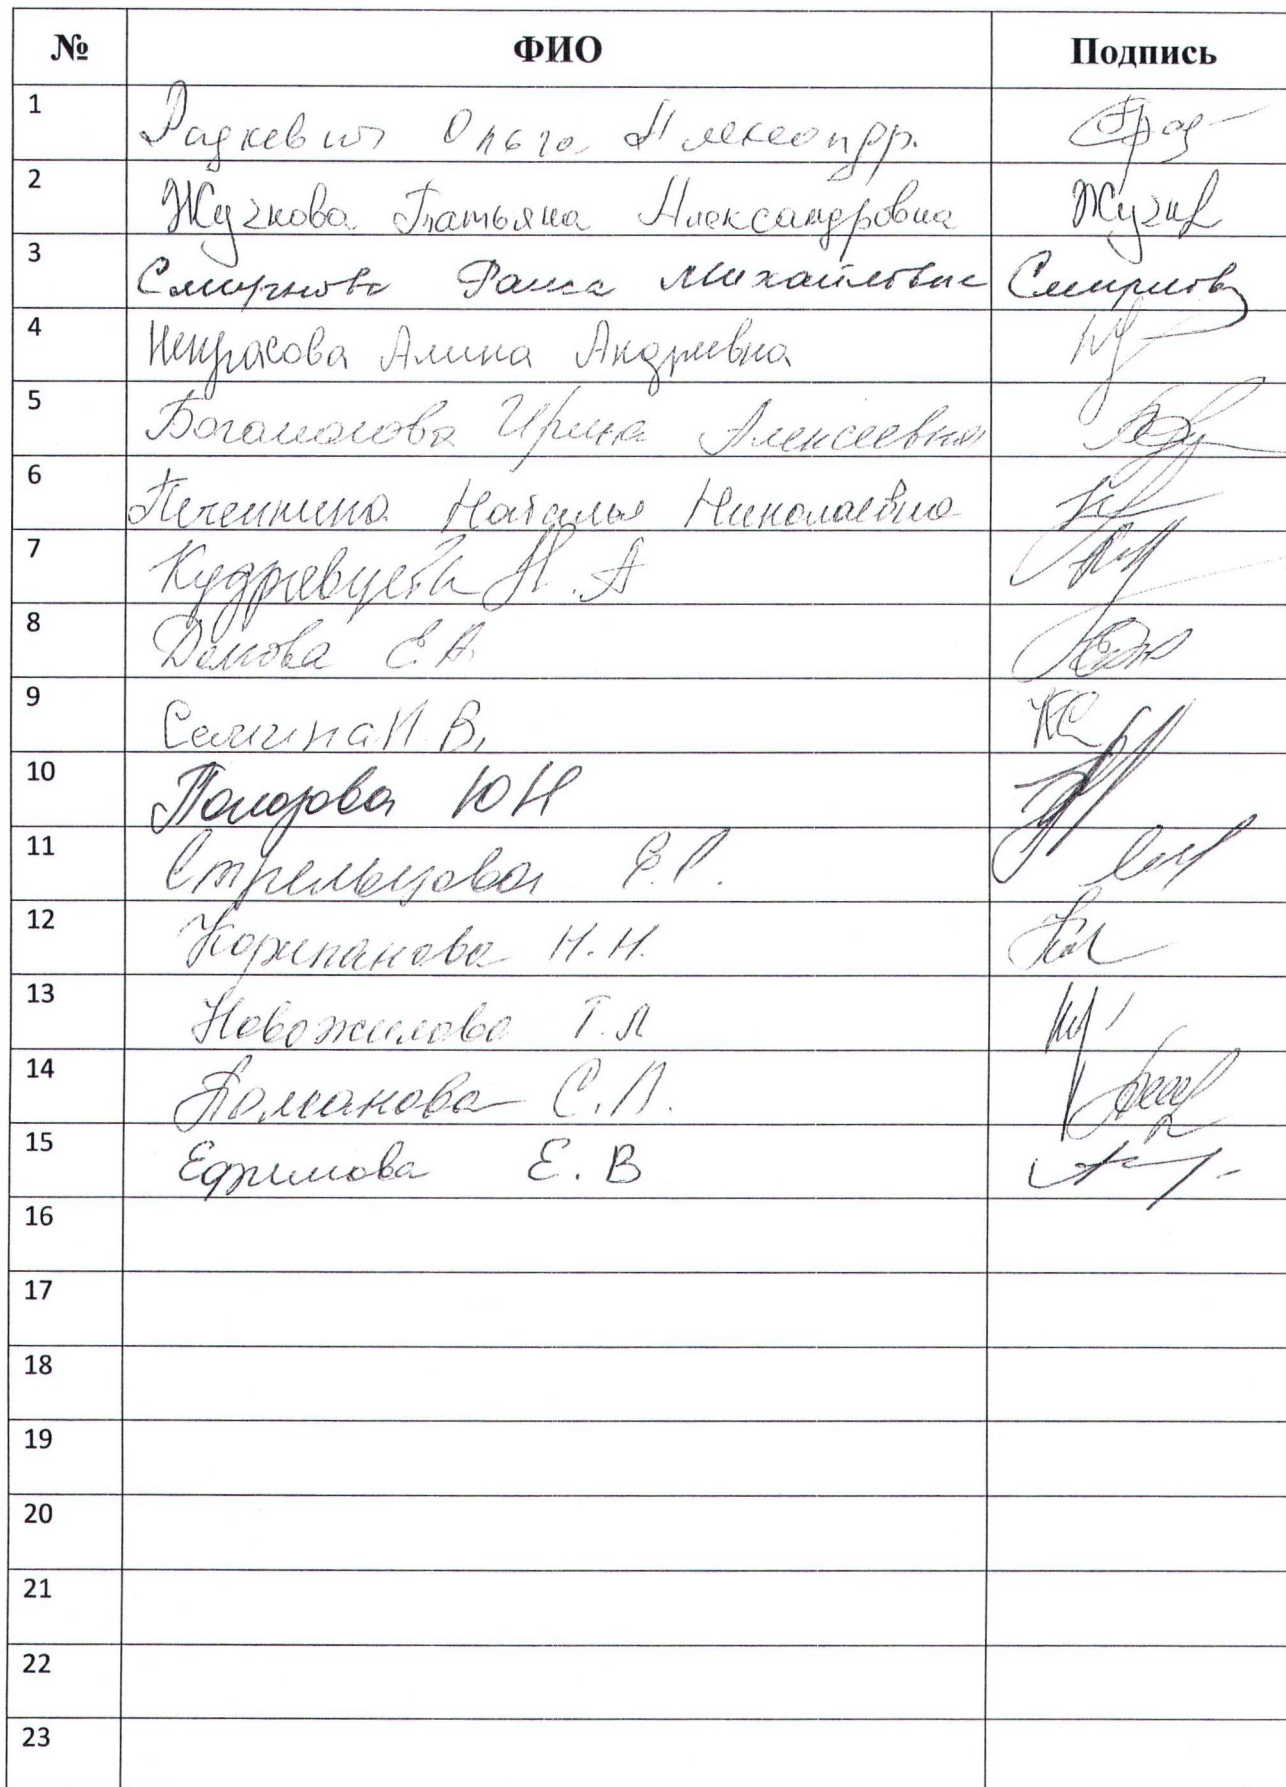 № ФИО Подпись
1 Радкевич Ольга Александр.
2 Жучкова Татьяна Александровна Жучк
3 Смирнова Раиса Михайловна Смирнова
4 Некрасова Алина Андреевна
5 Богомолова Ирина Алексеевна
6 Печенкина Наталья Николаевна
7 Кудрявцева Н. А
8 Демова Е.А.
9 Семина И.В.
10 Ю Н
11 Стрельцова Е.С.
12 Корепанова Н.Н.
13 Новожилова Т.Л
14 С.П.
15 Ефимова Е.В
16
17
18
19
20
21
22
23